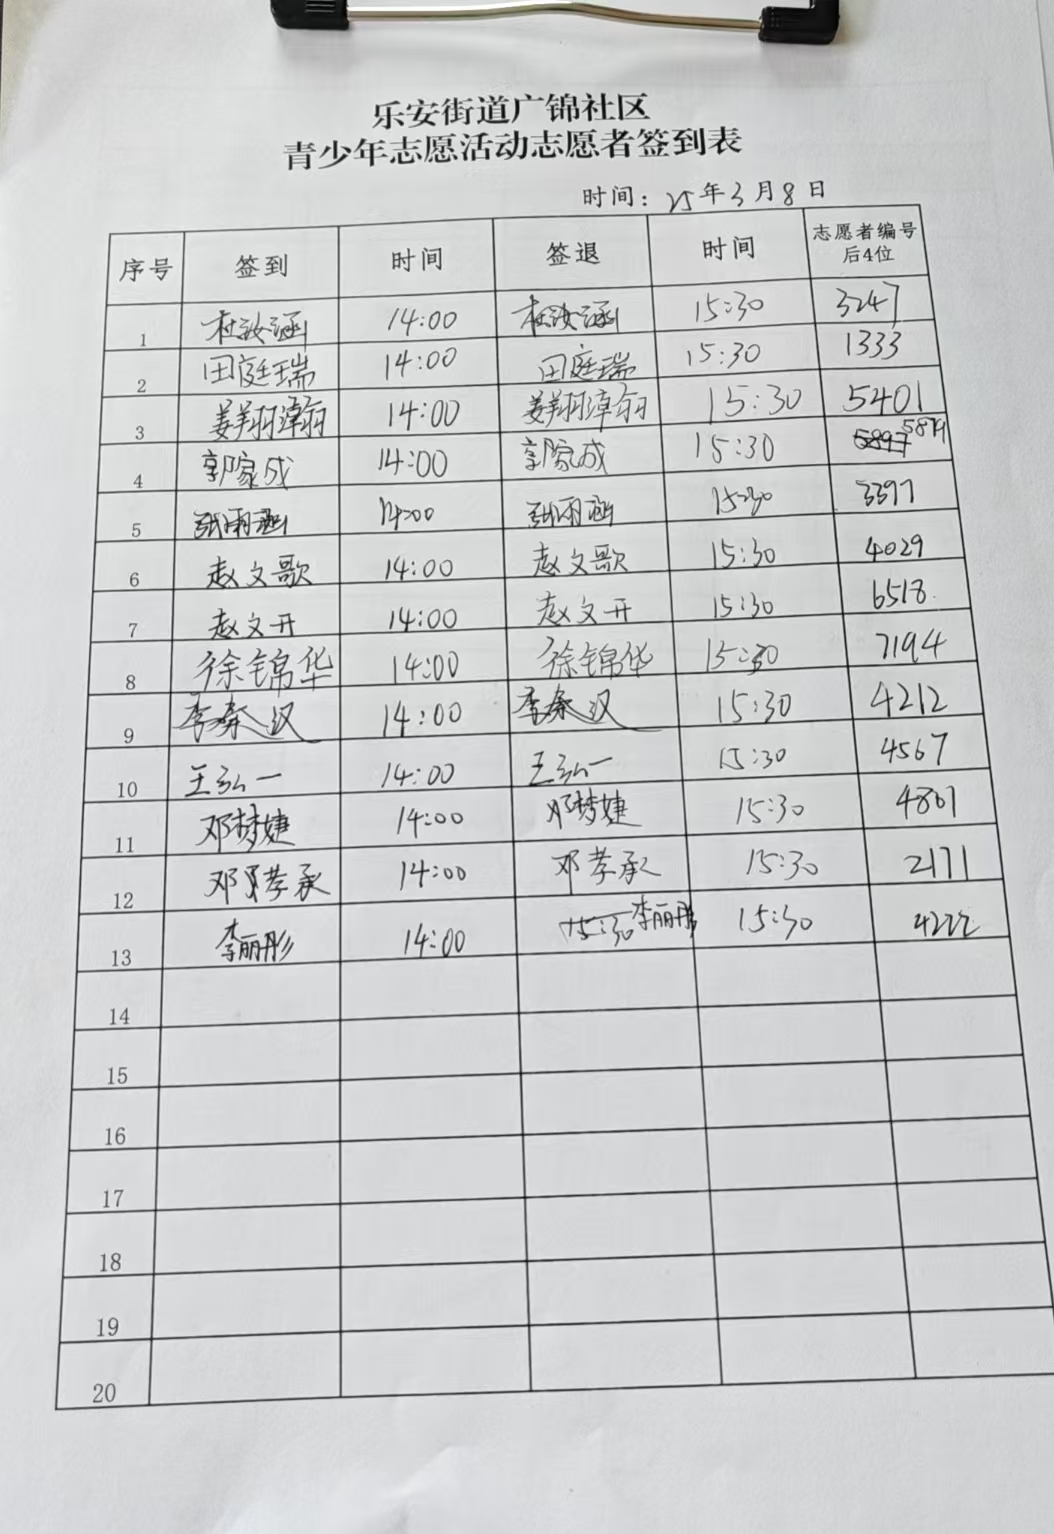 乐安街道广锦社区
青少年志愿活动志愿者签到表
时间：25年3月8日
序号 签到 时间 签退 时间 志愿者编号后4位
1 杜汝涵 14:00 杜汝涵 15:30 3247
2 田庭瑞 14:00 田庭瑞 15:30 1333
3 姜翔 14:00 姜翔 15:30 5401
4 郭家成 14:00 郭家成 15:30 5879
5 张雨涵 14:00 张雨涵 15:30 3397
6 赵文歌 14:00 赵文歌 15:30 4029
7 赵文开 14:00 赵文开 15:30 6518
8 徐锦华 14:00 徐锦华 15:30 7194
9 李 汉 14:00 李 汉 15:30 4212
10 王弘一 14:00 王弘一 15:30 4567
11 邓梦婕 14:00 邓梦婕 15:30 4861
12 邓孝承 14:00 邓孝承 15:30 2171
13 李丽彤 14:00 15:30 李丽彤 15:30 4222
14
15
16
17
18
19
20